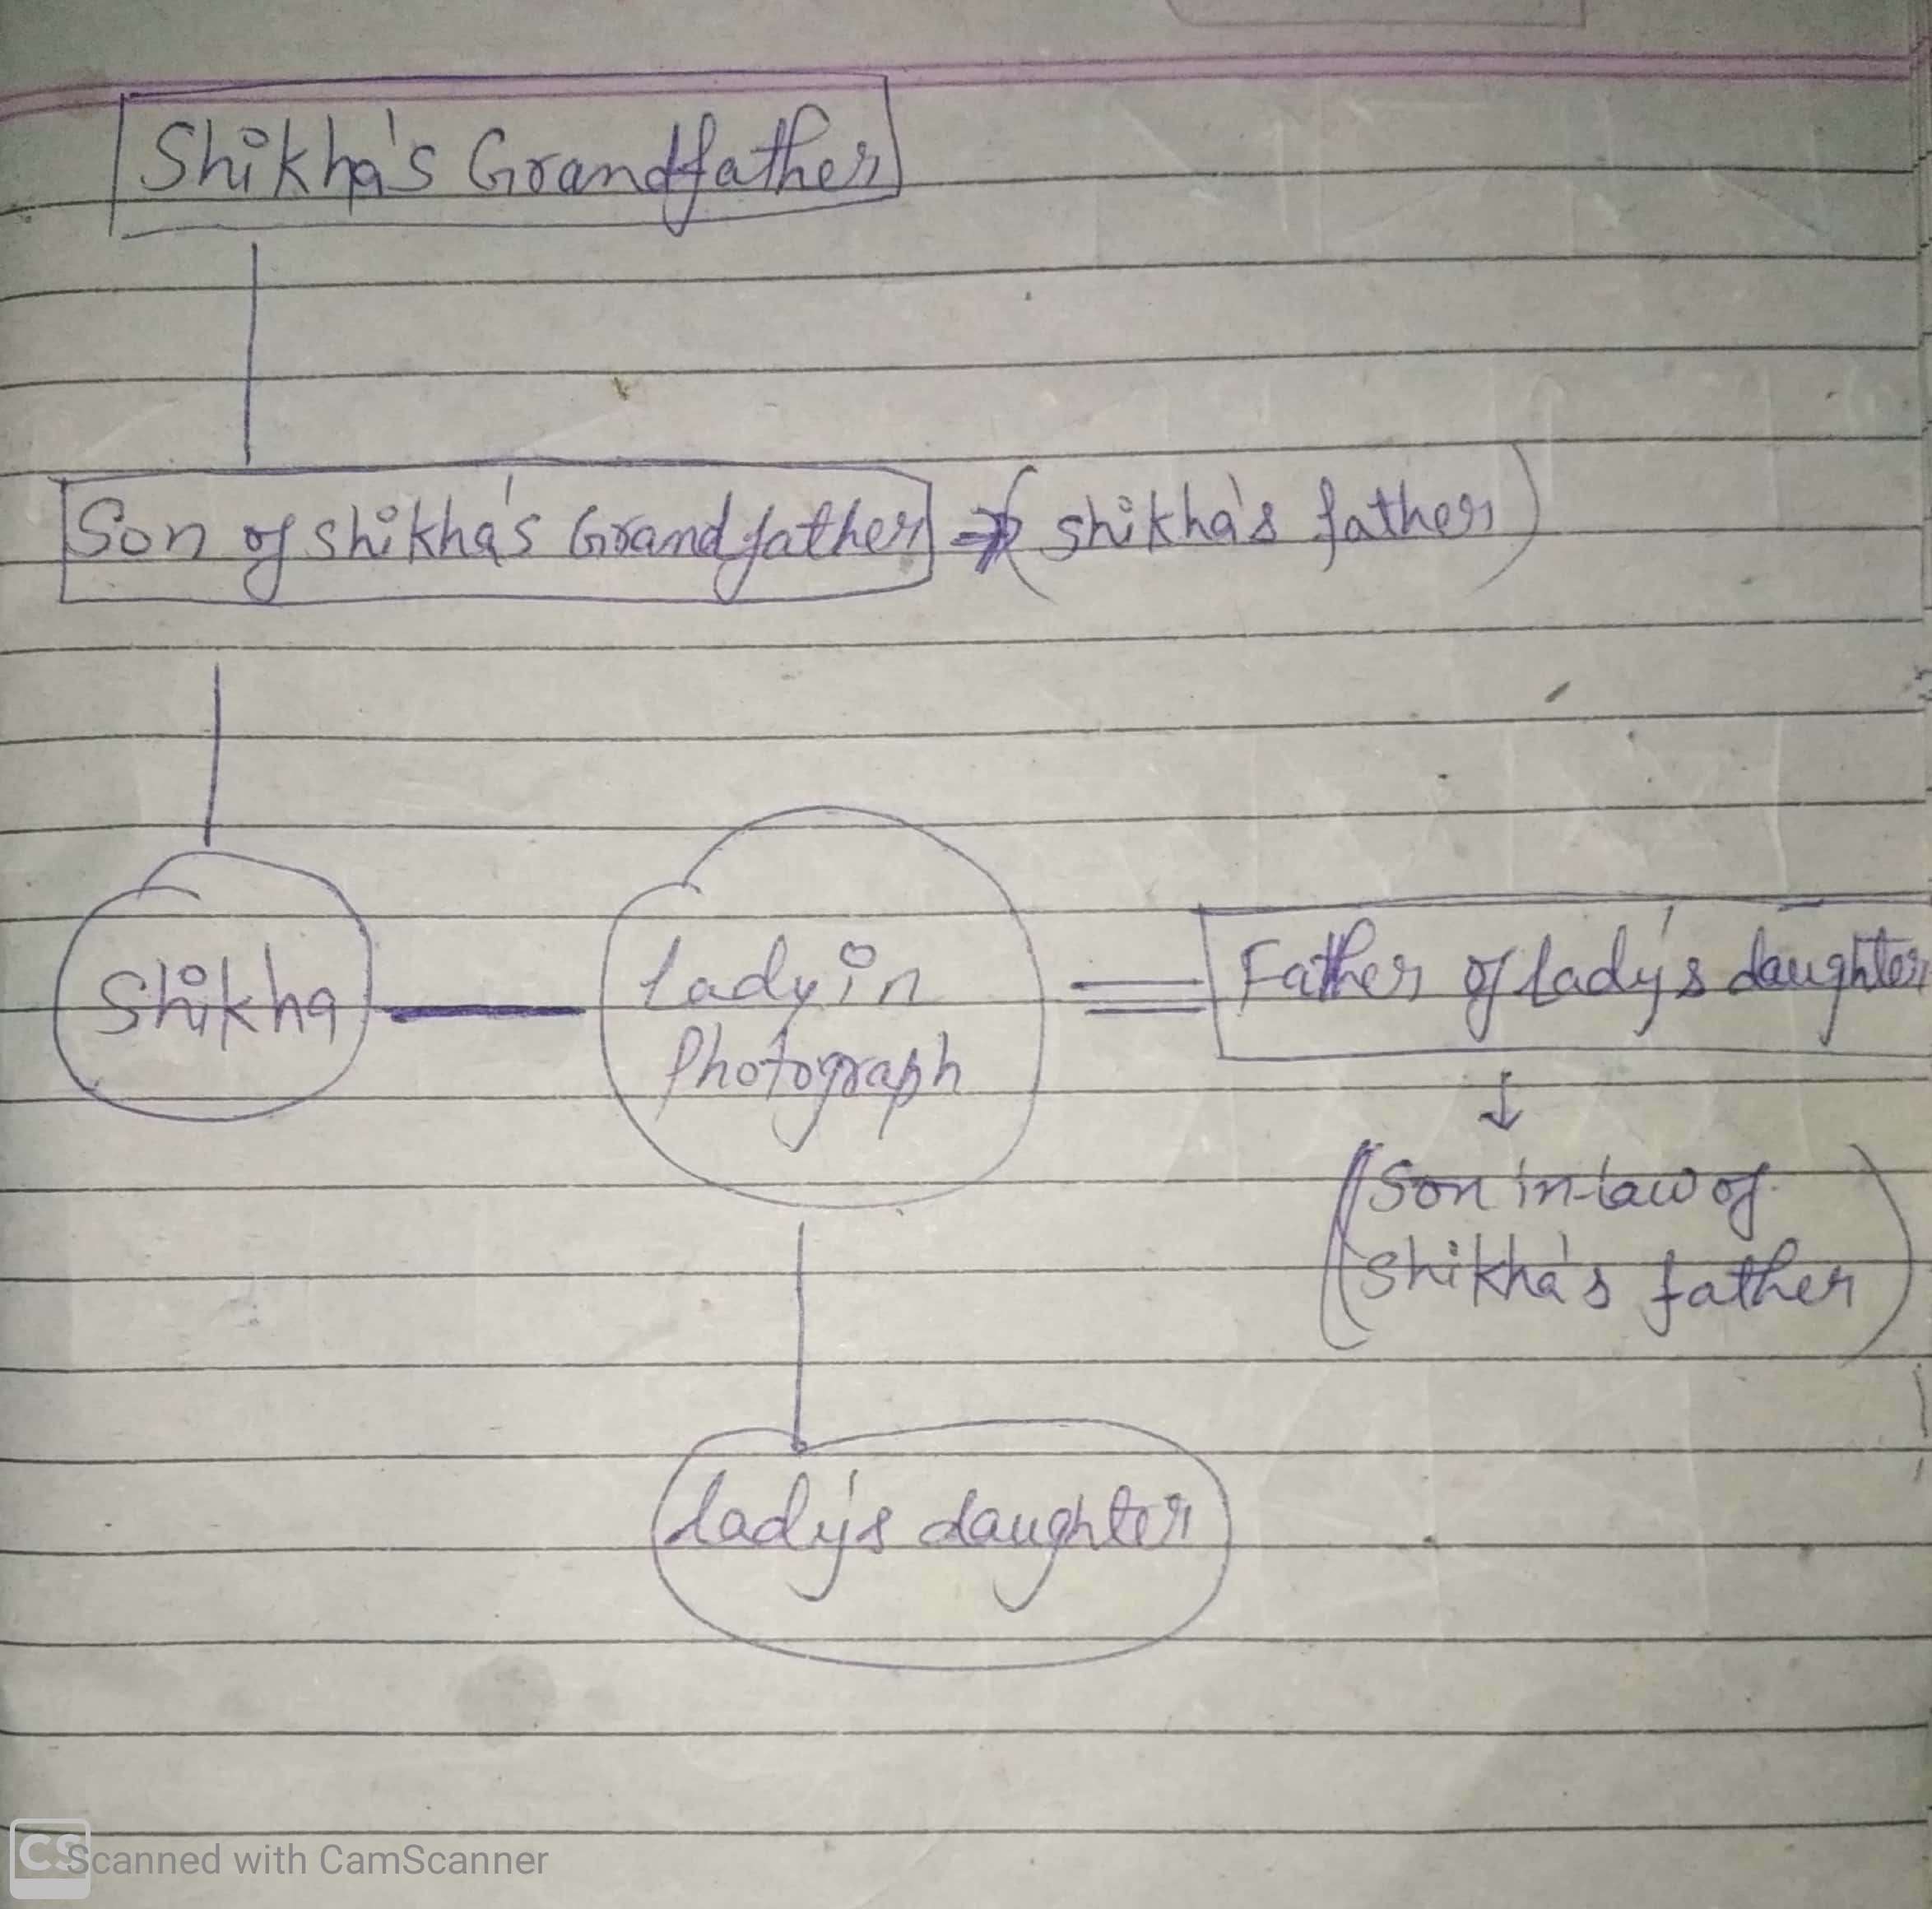 Shikha's Grandfather
Son of shikha's Grandfather ⇒ (shikha's father)
Shikha
lady in
Photograph
Father of lady's daughter
↓
(Son in-law of
shikha's father)
lady's daughter
CS Scanned with CamScanner